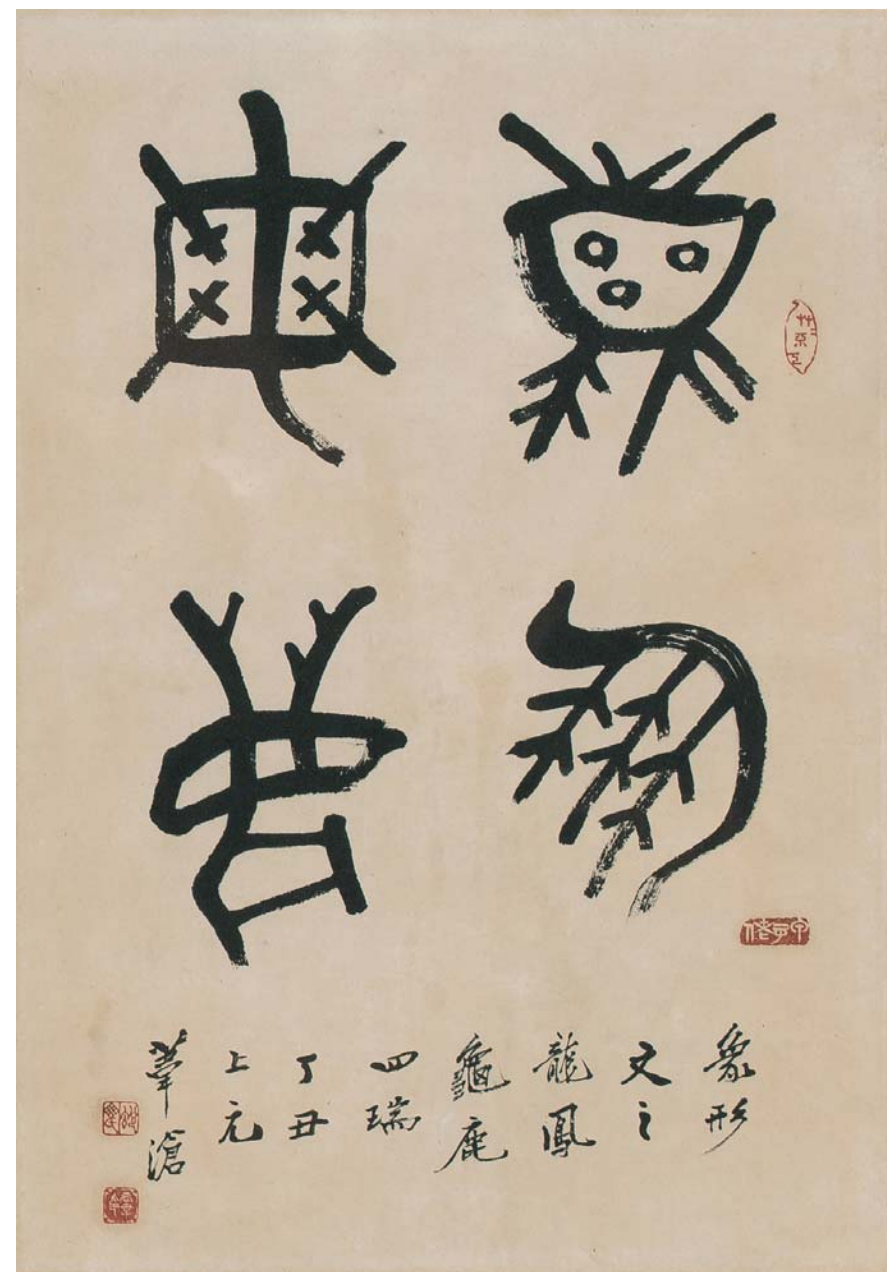 龍
鳳
龜
鹿
象形
文之
龍鳳
龜鹿
四瑞
丁丑
上元
葦滄